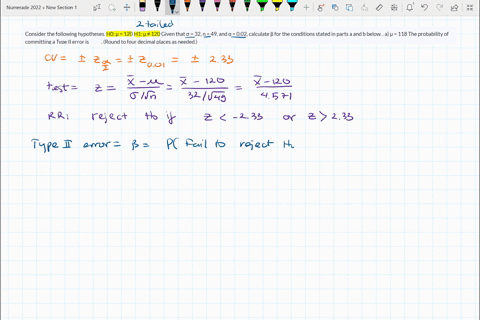 Numerade 2022 > New Section 1
2 tailed
Consider the following hypotheses, H0: μ = 120 H1: μ ≠ 120 Given that σ = 32, n = 49, and α = 0.02, calculate β for the conditions stated in parts a and b below. . a) μ = 118 The probability of
committing a Type II error is . (Round to four decimal places as needed.)
CV = ± z α/2 = ± z 0.01 = ± 2.33
test = z = x̄ - μ / σ/√n = x̄ - 120 / 32/√49 = x̄ - 120 / 4.571
RR: reject Ho if z < -2.33 or z > 2.33
Type II error = β = P( Fail to reject H